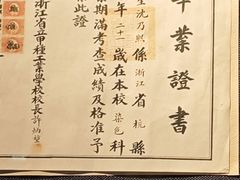 業證書
生沈乃熙係浙江省杭縣
年二十一歲在本校染色科
業期滿考查成績及格准予
此證
浙江省立甲種工業學校校長許炳堃